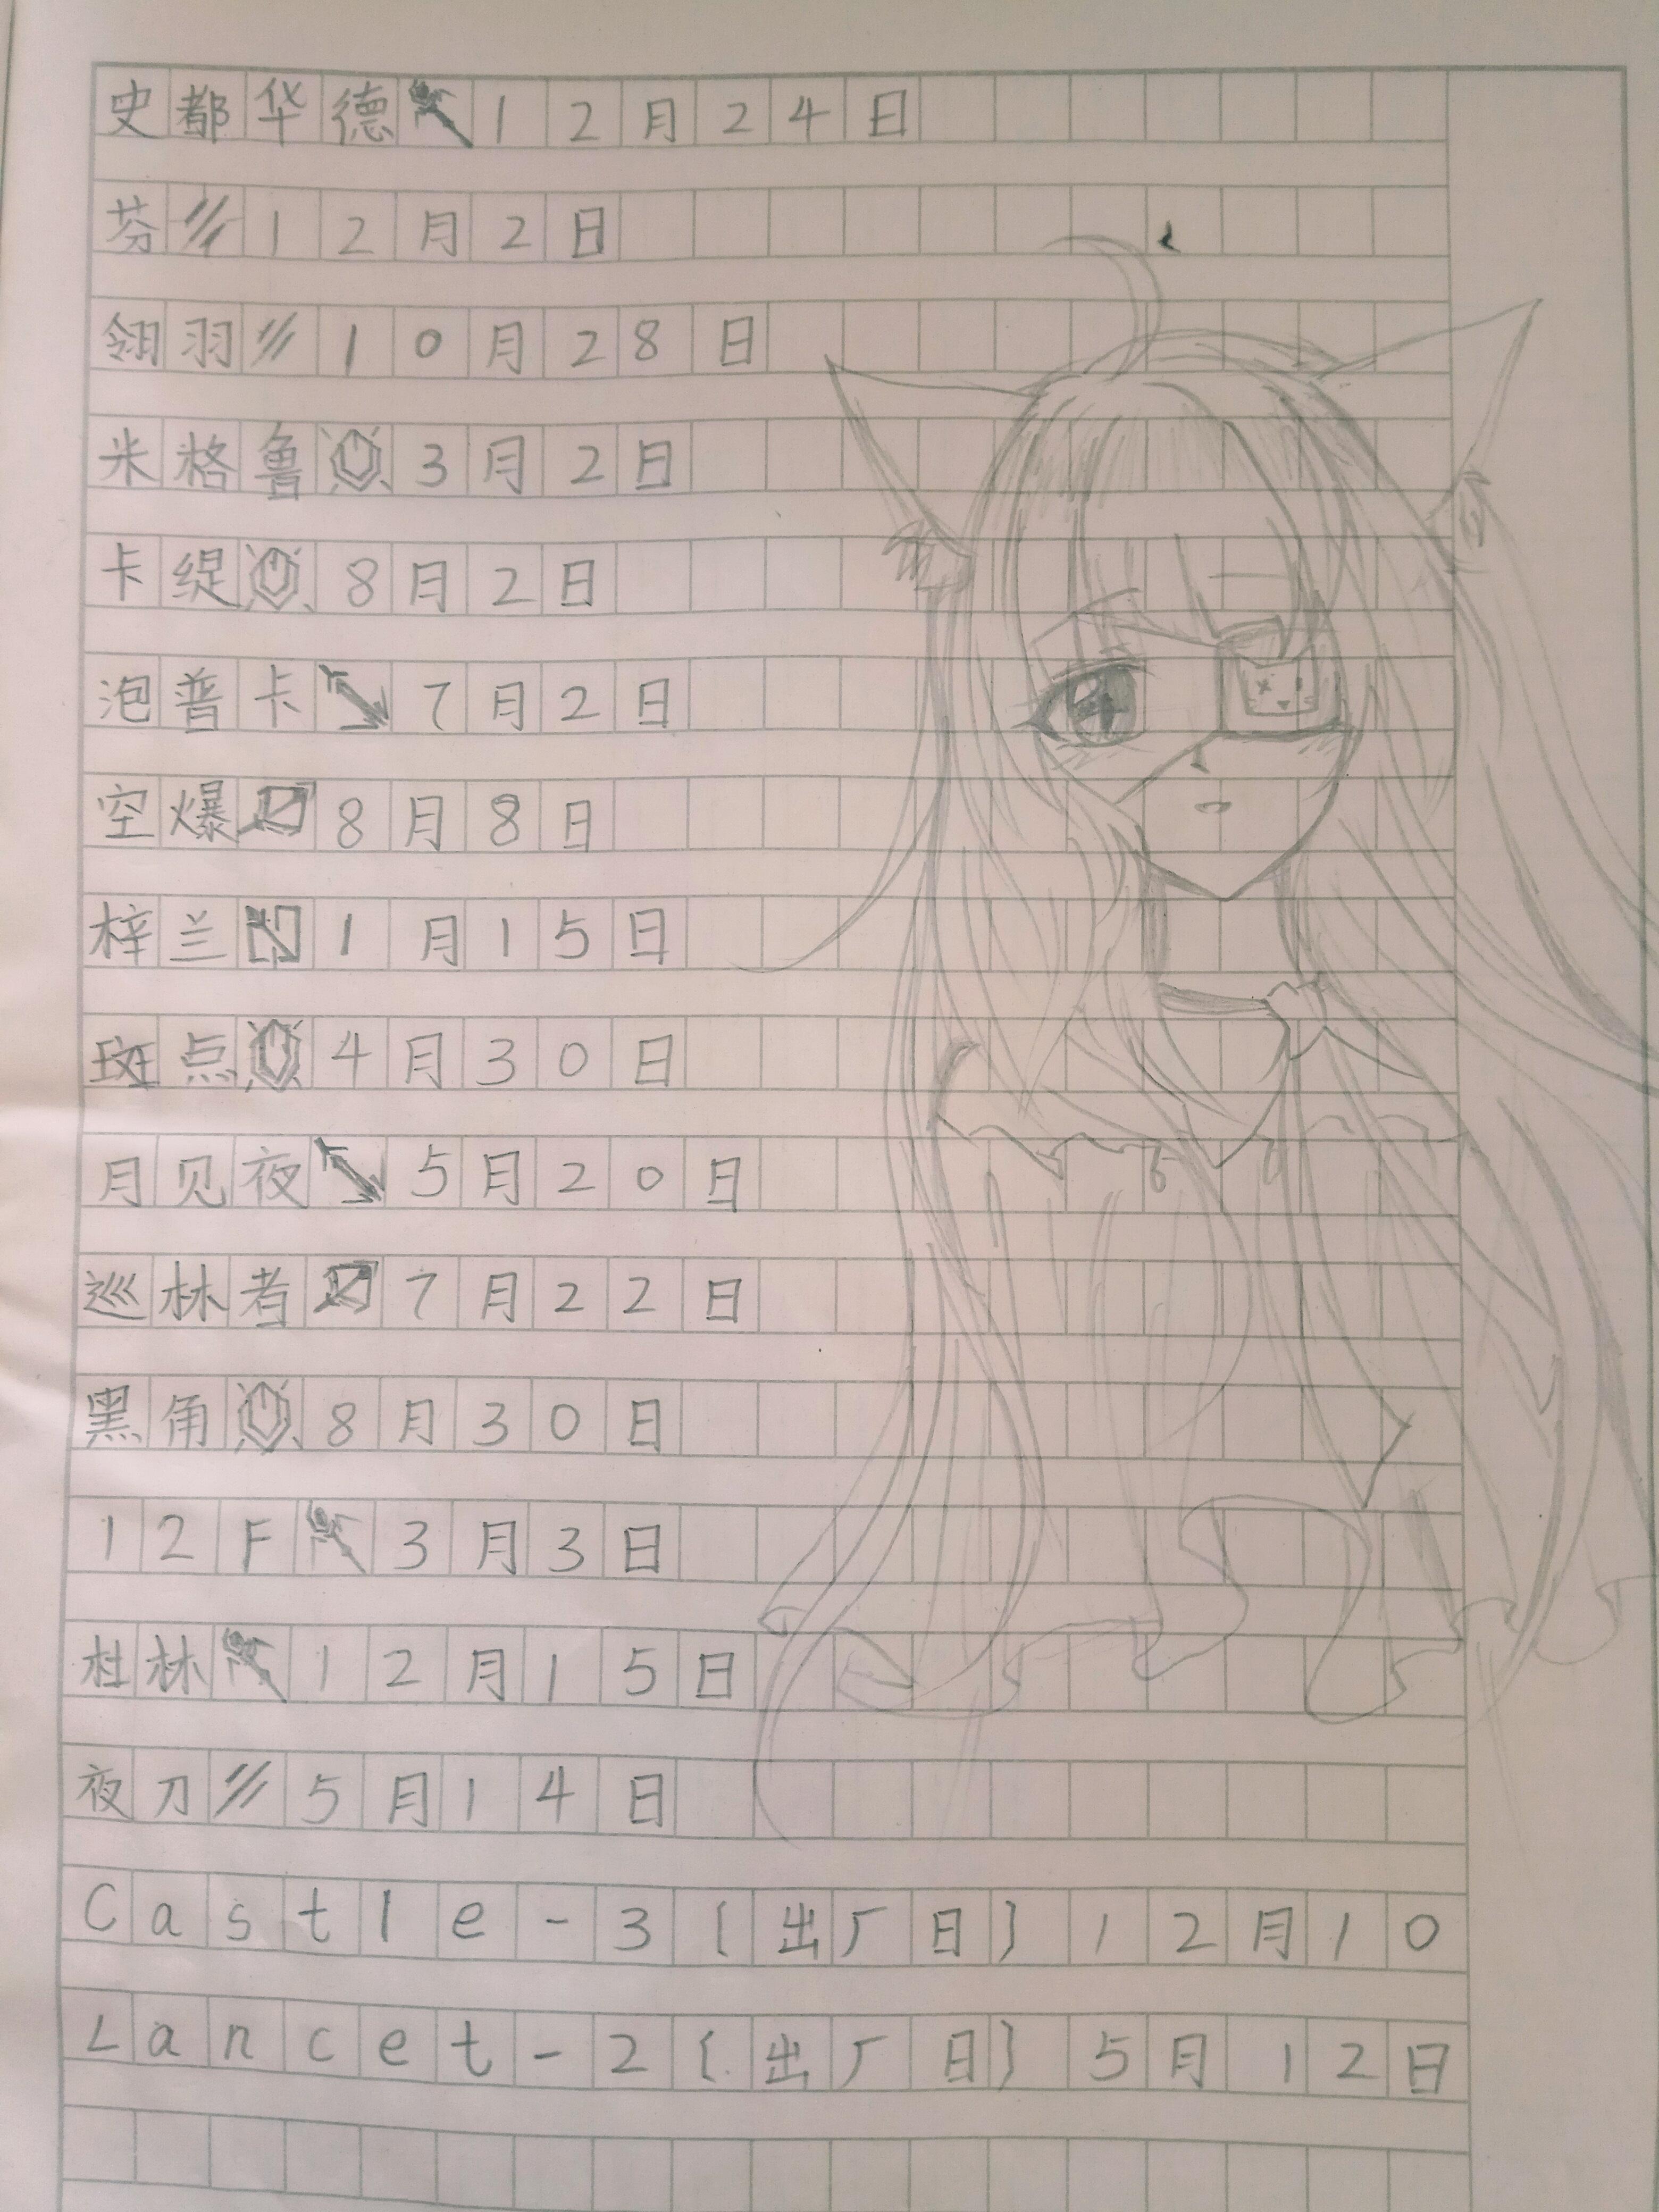 史都华德12月24日
芬12月2日
翎羽10月28日
米格鲁3月2日
卡缇8月2日
泡普卡7月2日
空爆8月8日
梓兰1月15日
斑点4月30日
月见夜5月20日
巡林者7月22日
黑角8月30日
12F3月3日
杜林12月15日
夜刀5月14日
Castle-3[出厂日]12月10
Lancet-2[出厂日]5月12日